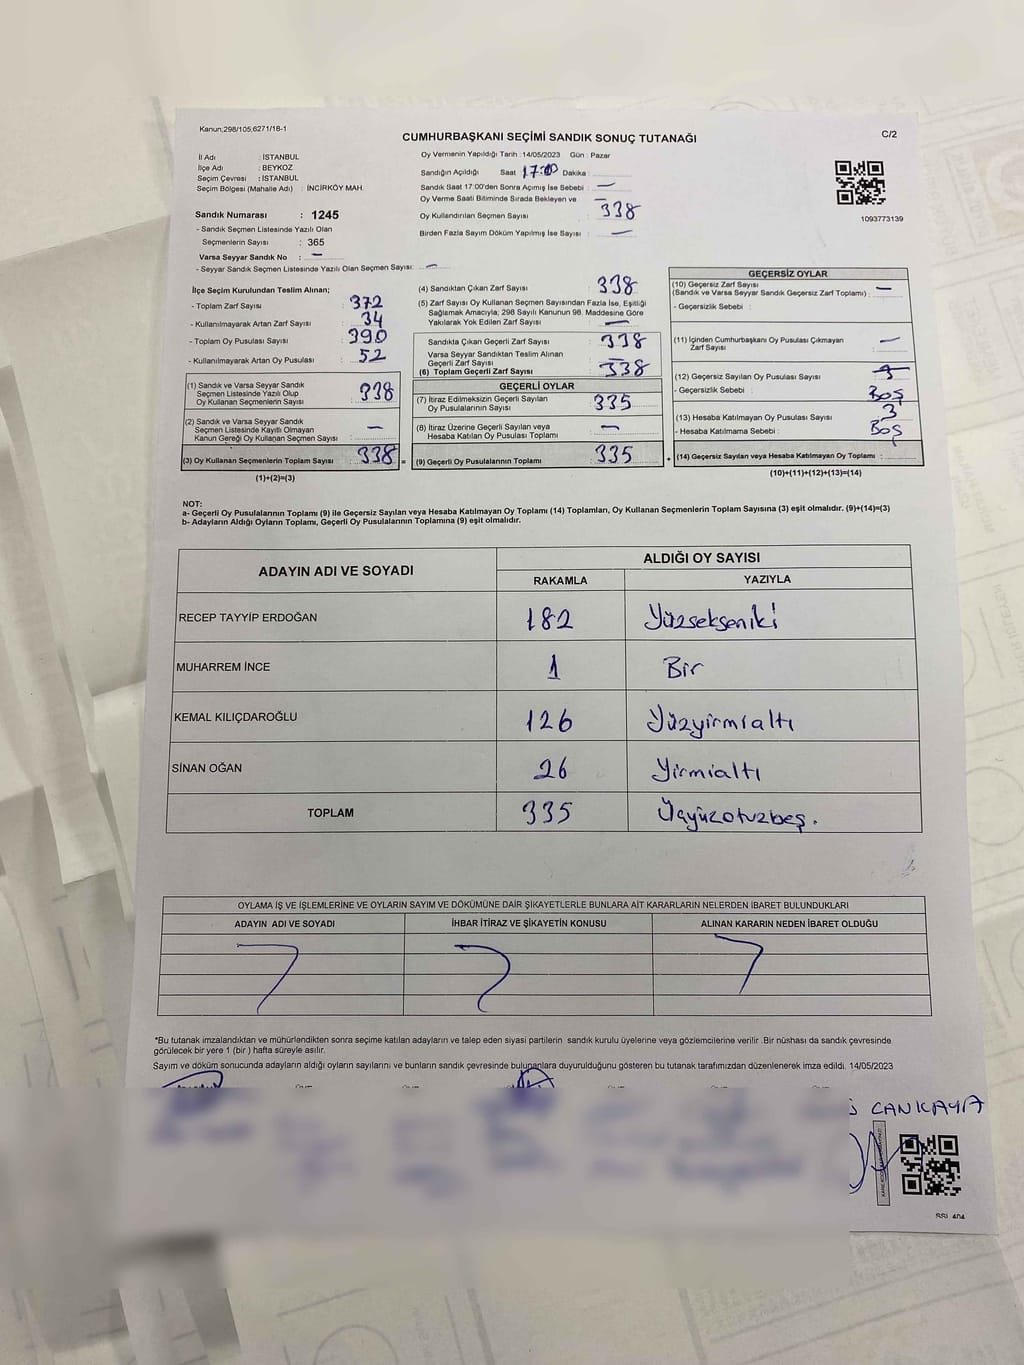 Kanun;298/105;6271/18-1
CUMHURBAŞKANI SEÇİMİ SANDIK SONUÇ TUTANAĞI
C/2
İl Adı : İSTANBUL
İlçe Adı : BEYKOZ
Seçim Çevresi : İSTANBUL
Seçim Bölgesi (Mahalle Adı) : İNCİRKÖY MAH.
Sandık Numarası : 1245
- Sandık Seçmen Listesinde Yazılı Olan
Seçmenlerin Sayısı : 365
Varsa Seyyar Sandık No : —
- Seyyar Sandık Seçmen Listesinde Yazılı Olan Seçmen Sayısı: —
Oy Vermenin Yapıldığı Tarih : 14/05/2023 Gün : Pazar
Sandığın Açıldığı Saat 17:00 Dakika :
Sandık Saat 17:00'den Sonra Açımış İse Sebebi : —
Oy Verme Saati Bitiminde Sırada Bekleyen ve : —
Oy Kullandırılan Seçmen Sayısı 338
Birden Fazla Sayım Döküm Yapılmış İse Sayısı : —
1093773139
İlçe Seçim Kurulundan Teslim Alınan;
- Toplam Zarf Sayısı : 372
- Kullanılmayarak Artan Zarf Sayısı : 34
- Toplam Oy Pusulası Sayısı : 390
- Kullanılmayarak Artan Oy Pusulası : 52
(1) Sandık ve Varsa Seyyar Sandık
Seçmen Listesinde Yazılı Olup
Oy Kullanan Seçmenlerin Sayısı : 338
(2) Sandık ve Varsa Seyyar Sandık
Seçmen Listesinde Kayıtlı Olmayan
Kanun Gereği Oy Kullanan Seçmen Sayısı : —
(3) Oy Kullanan Seçmenlerin Toplam Sayısı : 338 =
(1)+(2)=(3)
(4) Sandıktan Çıkan Zarf Sayısı : 338
(5) Zarf Sayısı Oy Kullanan Seçmen Sayısından Fazla İse, Eşitliği
Sağlamak Amacıyla; 298 Sayılı Kanunun 98. Maddesine Göre
Yakılarak Yok Edilen Zarf Sayısı : —
Sandıkta Çıkan Geçerli Zarf Sayısı : 338
Varsa Seyyar Sandıktan Teslim Alınan
Geçerli Zarf Sayısı : —
(6) Toplam Geçerli Zarf Sayısı : 338
GEÇERLİ OYLAR
(7) İtiraz Edilmeksizin Geçerli Sayılan
Oy Pusulalarının Sayısı : 335
(8) İtiraz Üzerine Geçerli Sayılan veya
Hesaba Katılan Oy Pusulası Toplamı : —
(9) Geçerli Oy Pusulalarının Toplamı : 335 +
GEÇERSİZ OYLAR
(10) Geçersiz Zarf Sayısı
(Sandık ve Varsa Seyyar Sandık Geçersiz Zarf Toplamı) : —
- Geçersizlik Sebebi :
(11) İçinden Cumhurbaşkanı Oy Pusulası Çıkmayan
Zarf Sayısı : —
(12) Geçersiz Sayılan Oy Pusulası Sayısı :
- Geçersizlik Sebebi : Boş
(13) Hesaba Katılmayan Oy Pusulası Sayısı : 3
- Hesaba Katılmama Sebebi : Boş
(14) Geçersiz Sayılan veya Hesaba Katılmayan Oy Toplamı :
(10)+(11)+(12)+(13)=(14)
NOT:
a- Geçerli Oy Pusulalarının Toplamı (9) ile Geçersiz Sayılan veya Hesaba Katılmayan Oy Toplamı (14) Toplamları, Oy Kullanan Seçmenlerin Toplam Sayısına (3) eşit olmalıdır. (9)+(14)=(3)
b- Adayların Aldığı Oyların Toplamı, Geçerli Oy Pusulalarının Toplamına (9) eşit olmalıdır.
ADAYIN ADI VE SOYADI ALDIĞI OY SAYISI
RAKAMLA YAZIYLA
RECEP TAYYİP ERDOĞAN 182 Yüzsekseniki
MUHARREM İNCE 1 Bir
KEMAL KILIÇDAROĞLU 126 Yüzyirmialtı
SİNAN OĞAN 26 Yirmialtı
TOPLAM 335 Üçyüzotuzbeş.
OYLAMA İŞ VE İŞLEMLERİNE VE OYLARIN SAYIM VE DÖKÜMÜNE DAİR ŞİKAYETLERLE BUNLARA AİT KARARLARIN NELERDEN İBARET BULUNDUKLARI
ADAYIN ADI VE SOYADI İHBAR İTİRAZ VE ŞİKAYETİN KONUSU ALINAN KARARIN NEDEN İBARET OLDUĞU
*Bu tutanak imzalandıktan ve mühürlendikten sonra seçime katılan adayların ve talep eden siyasi partilerin sandık kurulu üyelerine veya gözlemcilerine verilir .Bir nüshası da sandık çevresinde
görülecek bir yere 1 (bir) hafta süreyle asılır.
Sayım ve döküm sonucunda adayların aldığı oyların sayılarını ve bunların sandık çevresinde bulunanlara duyurulduğunu gösteren bu tutanak tarafımızdan düzenlenerek imza edildi. 14/05/2023
CANKAYA